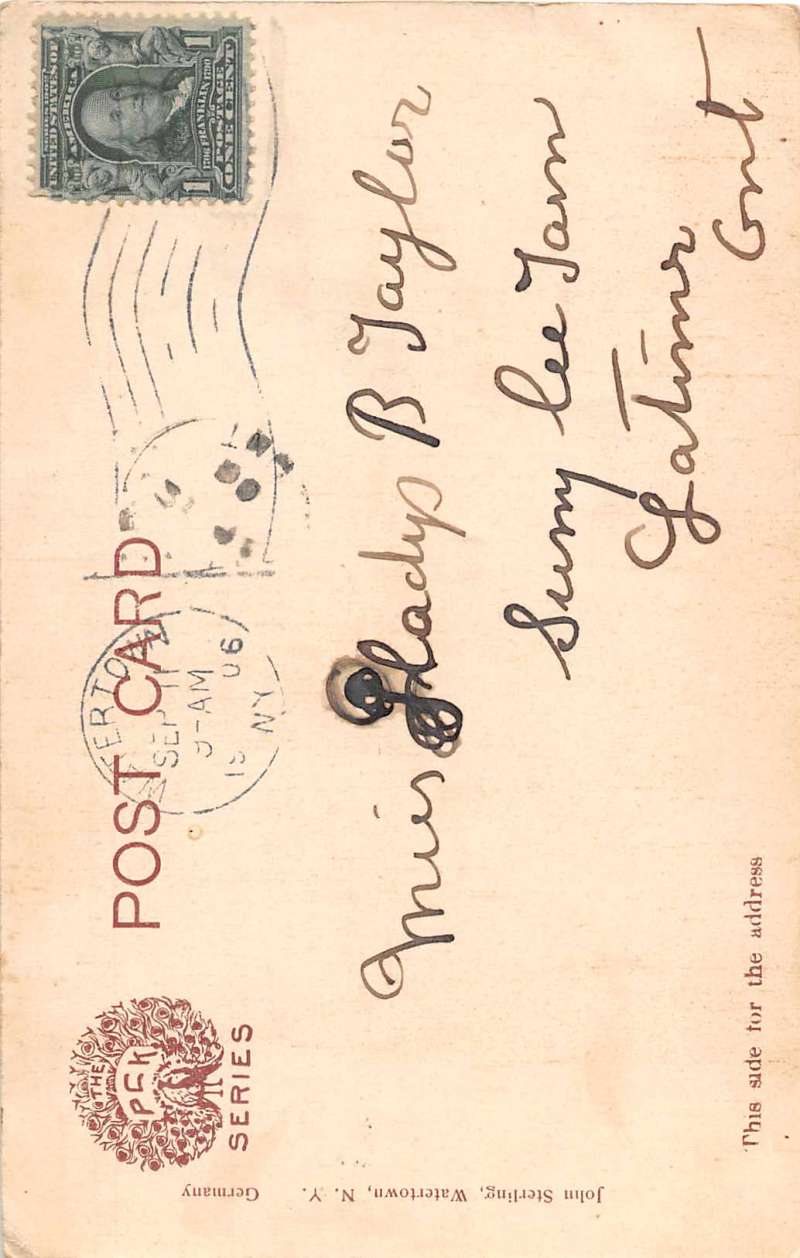 THE
P C K
SERIES
POST CARD
WATERTOWN
SEP 11
9-AM
19 06
N.Y.
UNITED STATES OF
AMERICA
1706 FRANKLIN 1790
POSTAGE
1 ONE CENT 1
Miss Gladys B Taylor
Sunny Lee Farm
Latimer
Ont
This side for the address
John Sterling, Watertown, N. Y. Germany